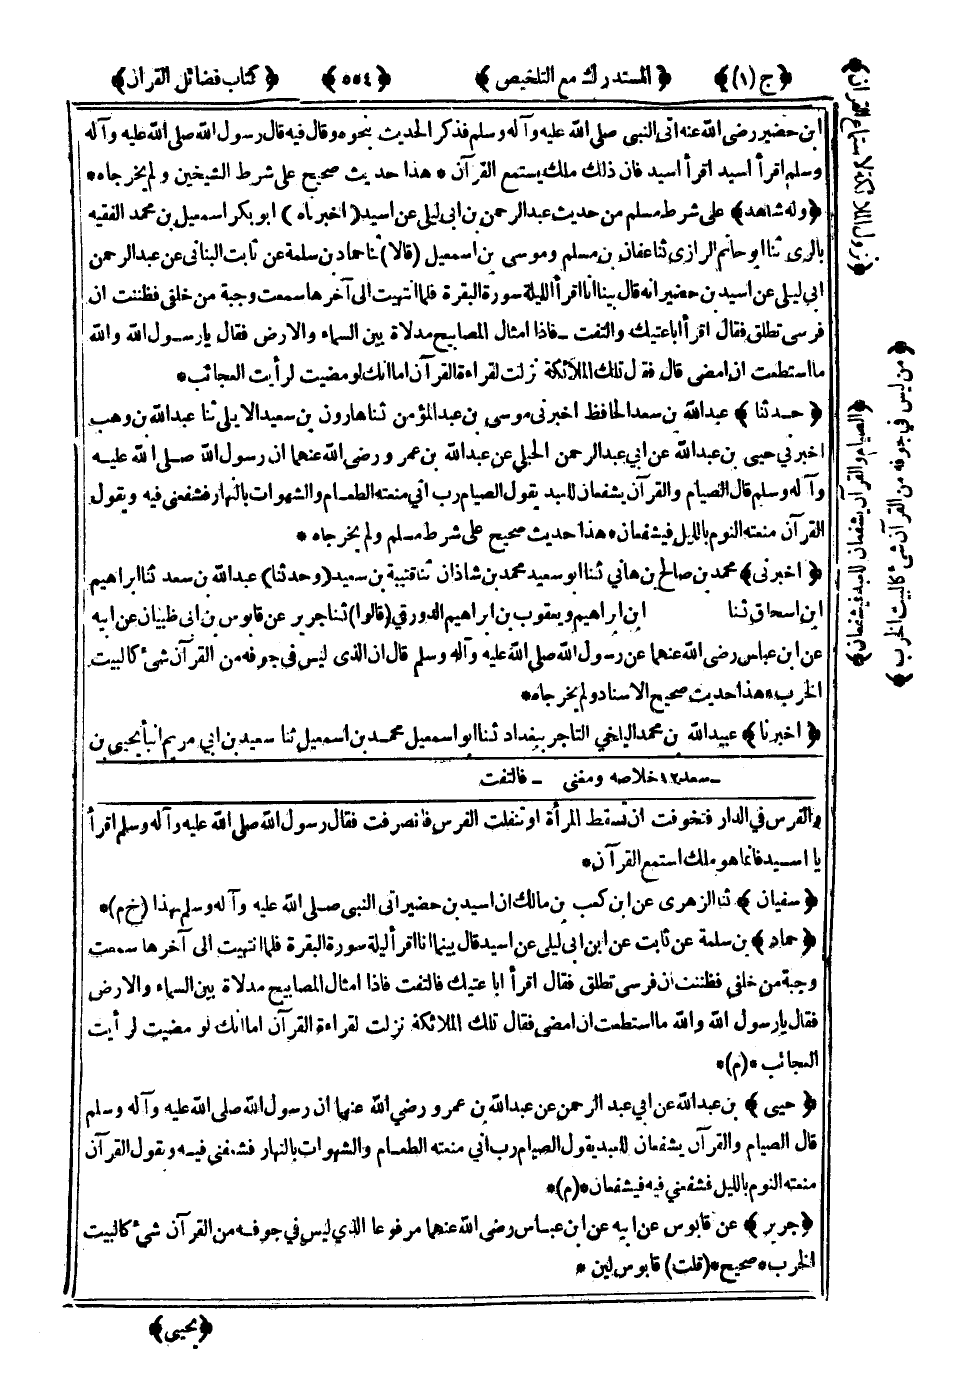 ﴿ ج (١) ﴾ ﴿ المستدرك مع التلخيص ﴾ ﴿ ٥٥٤ ﴾ ﴿ كتاب فضائل القرآن ﴾
ابن حضير رضى الله عنه اتى النبى صلى الله عليه وآله وسلم فذكر الحديث بنحوه وقال فيه قال رسول الله صلى الله عليه وآله
وسلم اقرأ أسيد اقرأ اسيد فان ذلك ملك يستمع القرآن * هذا حديث صحيح على شرط الشيخين ولم يخرجاه *
﴿ وله شاهد ﴾ على شرط مسلم من حديث عبدالرحمن بن ابى ليلى عن اسيد ( اخبرناه ) ابو بكر اسمعيل بن محمد الفقيه
بالرى ثنا ابو حاتم الرازى ثنا عفان بن مسلم وموسى بن اسمعيل (قالا) ثنا حماد بن سلمة عن ثابت البنانى عن عبدالرحمن
ابى ليلى عن اسيد بن حضير انه قال بينا انا اقرأ الليلة سورة البقرة فلما انتهيت الى آخرها سمعت وجبة من خلفى فظننت ان
فرسى تطلق فقال اقرأ ابا عتيك والتفت ـ فاذا امثال المصابيح مدلاة بين السماء والارض فقال يا رسول الله والله
ما استطعت ان امضى قال فقال تلك الملائكة نزلت لقراءة القرآن اما انك لو مضيت لرأيت العجائب *
﴿ حدثنا ﴾ عبدالله بن سعد الحافظ اخبرنى موسى بن عبدالمؤمن ثنا هارون بن سعيد الايلى ثنا عبدالله بن وهب
اخبرني حيى بن عبدالله عن ابي عبدالرحمن الحبلي عن عبدالله بن عمرو رضى الله عنهما ان رسول الله صلى الله عليه
وآله وسلم قال الصيام والقرآن يشفعان للعبد يقول الصيام رب انى منعته الطعام والشهوات بالنهار فشفعنى فيه ويقول
القرآن منعته النوم بالليل فيشفعان * هذا حديث صحيح على شرط مسلم ولم يخرجاه *
﴿ اخبرنى ﴾ محمد بن صالح بن هاني ثنا ابو سعيد محمد بن شاذان ثنا قتيبة بن سعيد (وحدثنا) عبدالله بن سعد ثنا ابراهيم
ابن اسحاق ثنا ابن ابراهيم ويعقوب بن ابراهيم الدورقي (قالوا) ثنا جرير عن قابوس بن ابى ظبيان عن ابيه
عن ابن عباس رضى الله عنهما عن رسول الله صلى الله عليه وآله وسلم قال ان الذى ليس فى جوفه من القرآن شئ كالبيت
الخرب * هذا حديث صحيح الاسناد ولم يخرجاه *
﴿ اخبرنا ﴾ عبيدالله بن محمد البلخي التاجر ببغداد ثنا ابو اسمعيل محمد بن اسمعيل ثنا سعيد بن ابي مريم انبأ يحيى بن
ـ سعد ١٢ خلاصه ومغنى ـ فالتفت
والفرس في الدار فتخوفت ان تسقط المرأة او تنفلت الفرس فانصرفت فقال رسول الله صلى الله عليه وآله وسلم اقرأ
يا اسيد فانما هو ملك استمع القرآن *
﴿ سفيان ﴾ ثنا الزهرى عن ابن كعب بن مالك ان اسيد بن حضير اتى النبى صلى الله عليه وآله وسلم بهذا (خ م) *
﴿ حماد ﴾ بن سلمة عن ثابت عن ابن ابى ليلى عن اسيد قال بينما انا اقرأ ليلة سورة البقرة فلما انتهيت الى آخرها سمعت
وجبة من خلفى فظننت ان فرسى تطلق فقال اقرأ ابا عتيك فالتفت فاذا امثال المصابيح مدلاة بين السماء والارض
فقال يا رسول الله والله ما استطعت ان امضى فقال تلك الملائكة نزلت لقراءة القرآن اما انك لو مضيت لرأيت
العجائب * (م) *
﴿ حيى ﴾ بن عبدالله عن ابي عبد الرحمن عن عبدالله بن عمرو رضى الله عنهما ان رسول الله صلى الله عليه وآله وسلم
قال الصيام والقرآن يشفعان للعبد يقول الصيام رب انى منعته الطعام والشهوات بالنهار فشفعنى فيه ويقول القرآن
منعته النوم بالليل فشفعني فيه فيشفعان * (م) *
﴿ جرير ﴾ عن قابوس عن ابيه عن ابن عباس رضى الله عنهما مرفوعا الذي ليس فى جوفه من القرآن شئ كالبيت
الخرب * صحيح * (قلت) قابوس لين *
﴿ يحيى ﴾
﴿ نزول الملائكة لاستماع القرآن ﴾
﴿ الصيام والقرآن يشفعان للعبد فيشفعان ﴾
﴿ من ليس في جوفه من القرآن شئ كالبيت الخرب ﴾